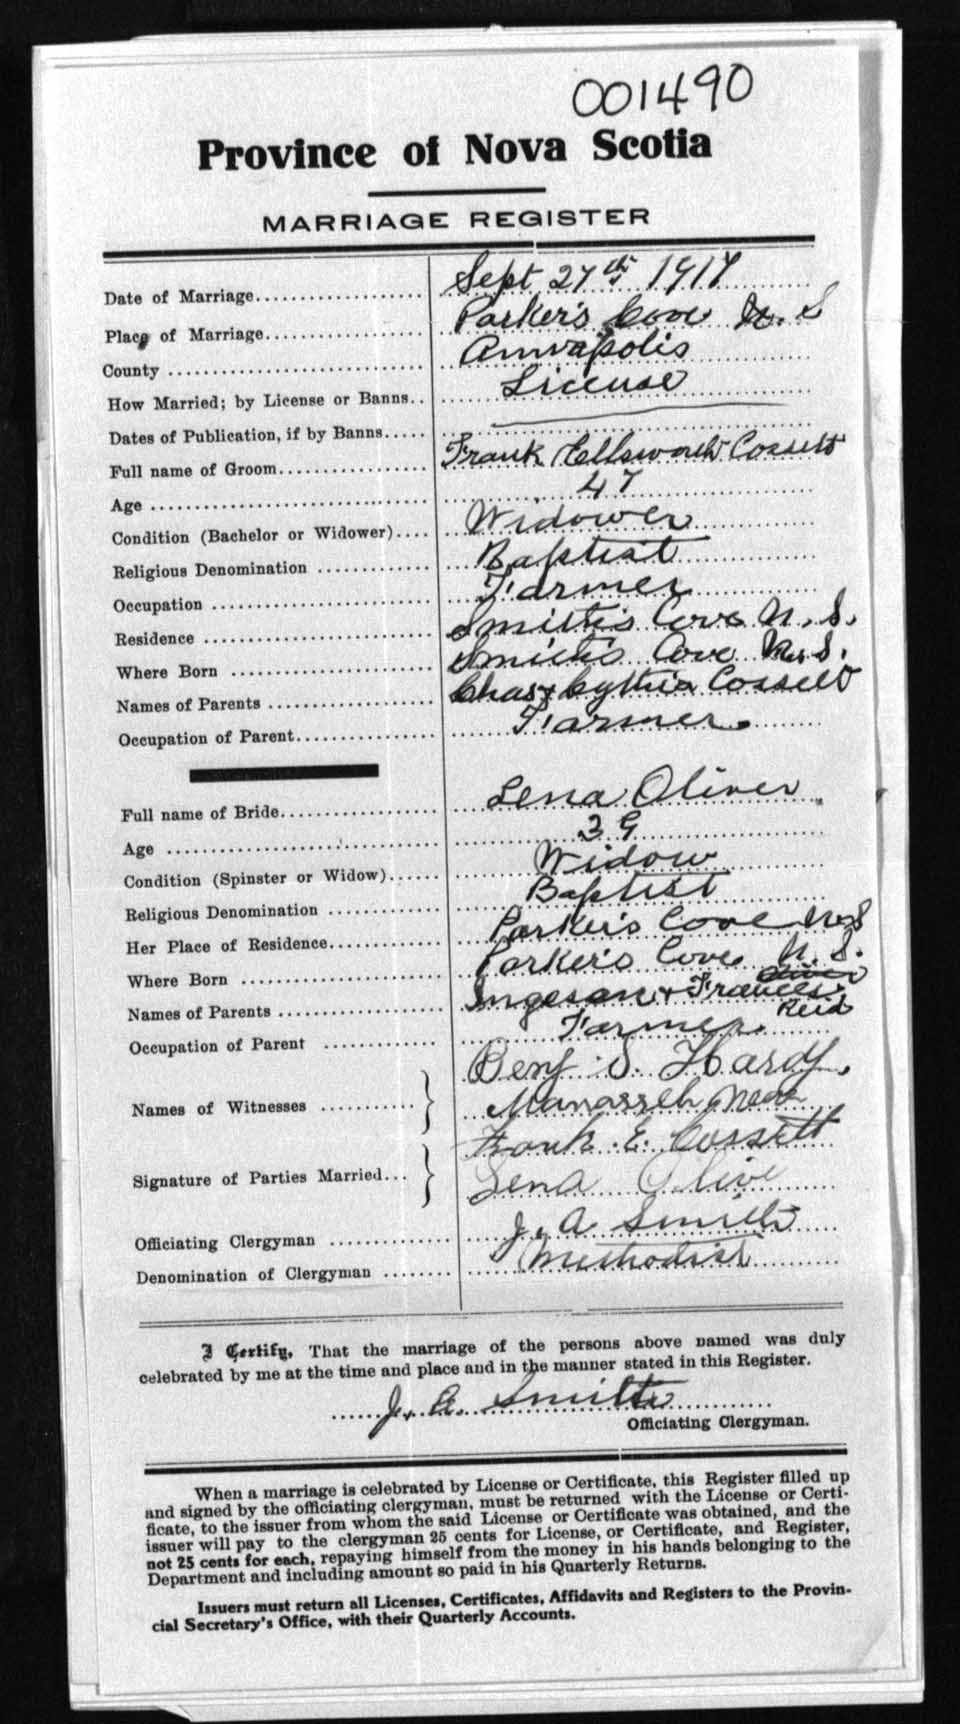 001490
Province of Nova Scotia
MARRIAGE REGISTER
Date of Marriage Sept 27th 1917
Place of Marriage Parker's Cove N. S
County Annapolis
How Married; by License or Banns License
Dates of Publication, if by Banns
Full name of Groom Frank Ellsworth Cossett
Age 47
Condition (Bachelor or Widower) Widower
Religious Denomination Baptist
Occupation Farmer
Residence Smith's Cove N. S.
Where Born Smith's Cove N. S.
Names of Parents Chas & Cythia Cossett
Occupation of Parent Farmer
Full name of Bride Lena Oliver
Age 39
Condition (Spinster or Widow) Widow
Religious Denomination Baptist
Her Place of Residence Parker's Cove N S
Where Born Parker's Cove N. S.
Names of Parents & Frances Reid
Occupation of Parent Farmer
Names of Witnesses Benj S. Hardy
Manasseh
Signature of Parties Married Frank E. Cossett
Lena Olive
Officiating Clergyman J. A Smith
Denomination of Clergyman Methodist
I Certify, That the marriage of the persons above named was duly
celebrated by me at the time and place and in the manner stated in this Register.
J. A. Smith
Officiating Clergyman.
When a marriage is celebrated by License or Certificate, this Register filled up
and signed by the officiating clergyman, must be returned with the License or Certi-
ficate, to the issuer from whom the said License or Certificate was obtained, and the
issuer will pay to the clergyman 25 cents for License, or Certificate, and Register,
not 25 cents for each, repaying himself from the money in his hands belonging to the
Department and including amount so paid in his Quarterly Returns.
Issuers must return all Licenses, Certificates, Affidavits and Registers to the Provin-
cial Secretary's Office, with their Quarterly Accounts.